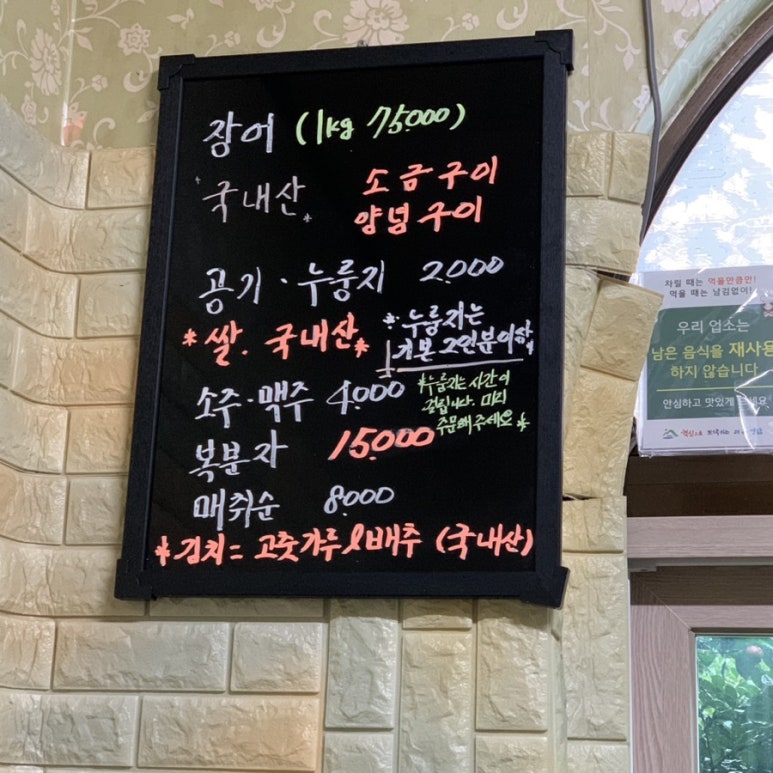 장어 (1kg 75.000)
국내산* 소금구이
양념구이
공기·누룽지 2.000
*쌀. 국내산*
*누룽지는
기본 2인분이상*
소주·맥주 4.000
*누룽지는 시간이
걸립니다. 미리
주문해주세요*
복분자 15.000
매취순 8.000
*김치= 고춧가루&배추 (국내산)
차릴 때는 먹을만큼만!
먹을 때는 남김없이!
우리 업소는
남은 음식을 재사용
하지 않습니다
안심하고 맛있게